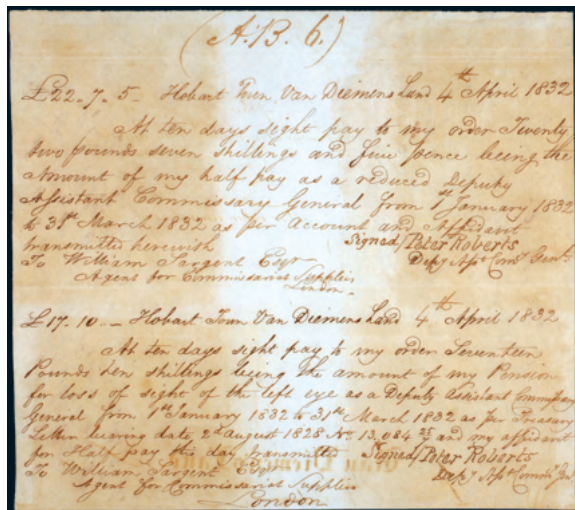 (A.B. 6.)
£22.7.5- Hobart Town Van Diemens Land 4th April 1832
At ten days sight pay to my order Twenty
two pounds seven shillings and five pence being the
Amount of my half pay as a reduced Deputy
Assistant Commissary General from 1st January 1832
to 31st March 1832 as per Account and Affidavit
transmitted herewith
Signed/Peter Roberts
To William Sargent Esqr
Depy Asst Comy Genl.
Agent for Commissariat Supplies
London.
£17.10.- Hobart Town Van Diemens Land 4th April 1832
At ten days sight pay to my order Seventeen
Pounds ten shillings being the amount of my Pension
for loss of sight of the left eye as a Deputy Assistant Commissary
General from 1st January 1832 to 31st March 1832 as per Treasury
Letter bearing date 2d August 1828 No. 13,084 and my affidavit
for Half pay this day transmitted
Signed/Peter Roberts
To William Sargent Esqr
Depy Asst Commy
Agent for Commissariat Supplies
London